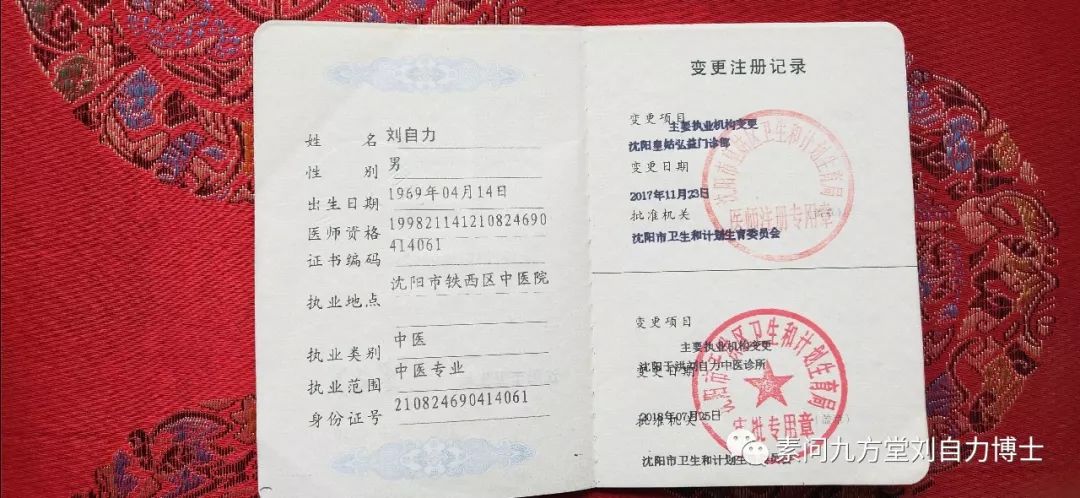 姓名 刘自力
性别 男
出生日期 1969年04月14日
医师资格 199821141210824690
证书编码 414061
执业地点 沈阳市铁西区中医院
执业类别 中医
执业范围 中医专业
身份证号 210824690414061
变更注册记录
变更项目
主要执业机构变更
沈阳皇姑弘益门诊部
变更日期
2017年11月23日
批准机关
沈阳市卫生和计划生育委员会
医师注册专用章
变更项目
主要执业机构变更
沈阳于洪刘自力中医诊所
变更日期
2018年07月25日
批准机关 (盖章)
沈阳市卫生和计划生育委员会
专用章
素问九方堂刘自力博士